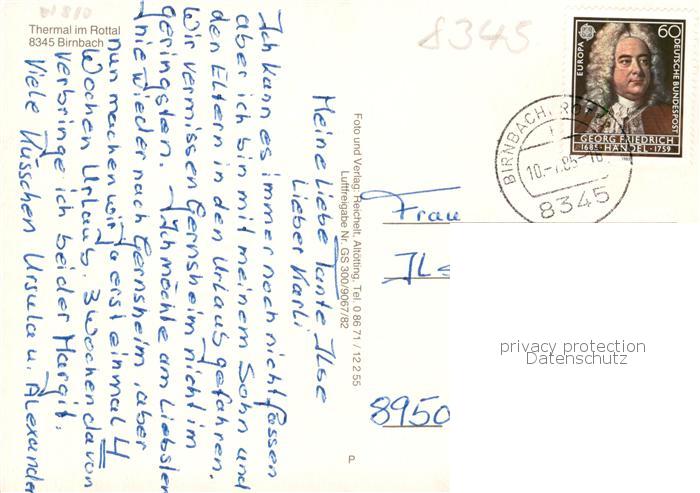 Thermal im Rottal
8345 Birnbach
Meine Liebe Tante Ilse
Lieber Karli
Ich kann es immer noch nicht fassen
aber ich bin mit meinem Sohn und
den Eltern in den Urlaub gefahren.
Wir vermissen Gernsheim nicht im
geringsten. Ich möchte am Liebsten
nie wieder nach Gernsheim, aber
nun machen wir ja erst einmal 4
Wochen Urlaub. 3 Wochen davon
verbringe ich bei der Margit.
Viele Küsschen Ursula u. Alexander
Foto und Verlag: Reichelt, Altötting, Tel. 0 86 71 / 12 2 55
Luftfreigabe Nr. GS 300/9067/82
P
8345
EUROPA
60
DEUTSCHE BUNDESPOST
GEORG FRIEDRICH
1685 · HÄNDEL · 1759
BIRNBACH,
8345
Frau
Ilse
8950
privacy protection
Datenschutz